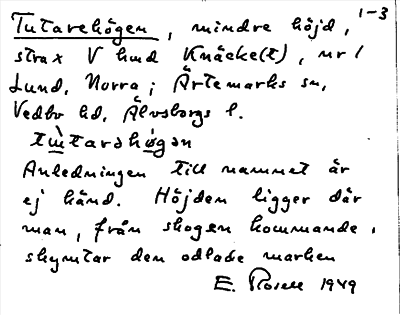 1-3
Tutarehögen, mindre höjd,
strax V hmd Knäcke(t), nr 1
Lund, Norra; Ärtemarks sn,
Vedbo hd, Älvsborgs l.
Anledningen till namnet är
ej känd. Höjden ligger där
man, från skogen kommande,
skymtar den odlade marken
E. Rosell 1949